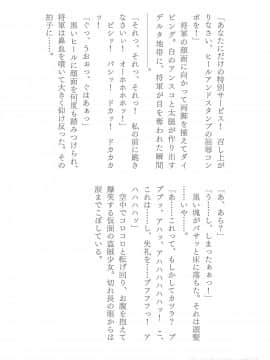 「あなたにだけの特別サービス！　召し上が
りなさい、ヒールアンドスタンプの屈辱コン
ボを！」
　将軍の顔面に向かって両脚を揃えてダイ
ビング。白のアンスコと太腿が作り出す
デルタ地帯に、将軍が目を奪われた瞬間
。
「それっ、それっ、それっ！　私の前に跪き
なさいい！　オーホホホホッ！」
　ビシッ！　バシッ！　ドカッ！　ドカカカ
ッ！
「ぐっ、うおぉっ、ぐはあぁっ」
　黒いヒールに顔面を何度も踏みつけられ、
将軍は鼻血を噴いて大きく仰け反った。その
拍子に…！
「あ、あら？」
「う……っ、しまったぁぁっ！」
　黒い塊がパサッと床に落ちた。それは頭髪
……いや……。
「あ……これって、もしかしてカツラ？　プ
ププッ、アハッ、アハハハハハハッ！　こ、
これは……し、失礼……ププフフっ！　ア
ハハハハッ」
　空中でコロコロと転げ回り、お腹を抱えて
爆笑する仮面の盗賊少女。切れ長の眼からは
涙までこぼしている。